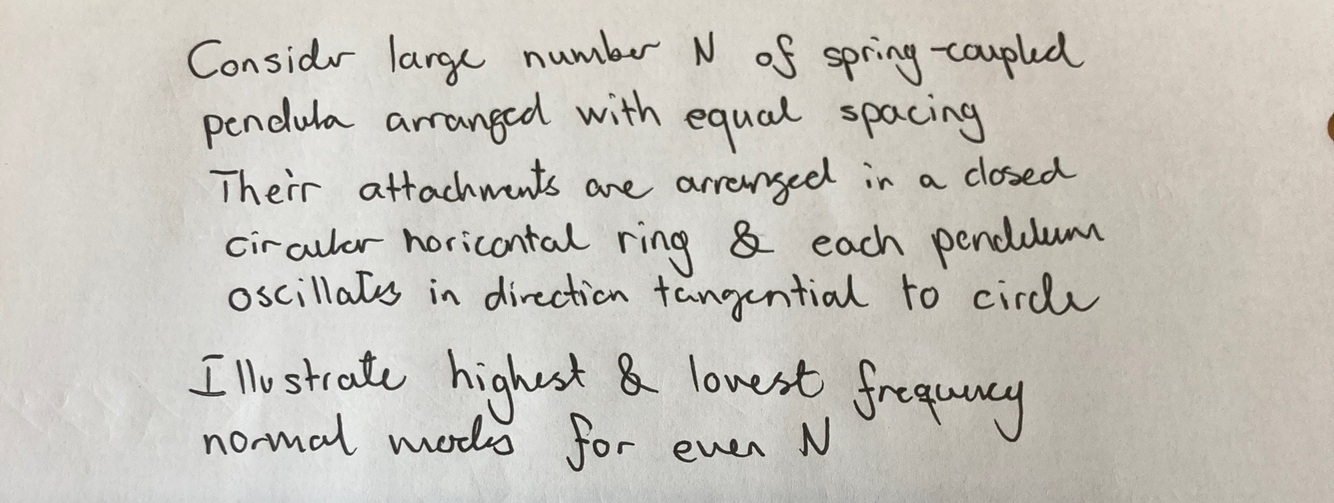 Consider large number N of spring-coupled
pendula arranged with equal spacing
Their attachments are arranged in a closed
circular horicontal ring & each pendulum
oscillates in direction tangential to circle
Illustrate highest & lowest frequency
normal modes for even N